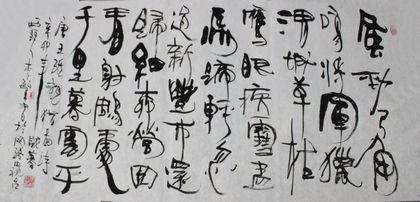 風勁角弓
鳴將軍獵
渭城草枯
鷹眼疾雪盡
馬蹄輕忽
過新豐市還
歸細柳營回
看射鵰處
千里暮雲平
唐王維觀獵詩
辛卯年